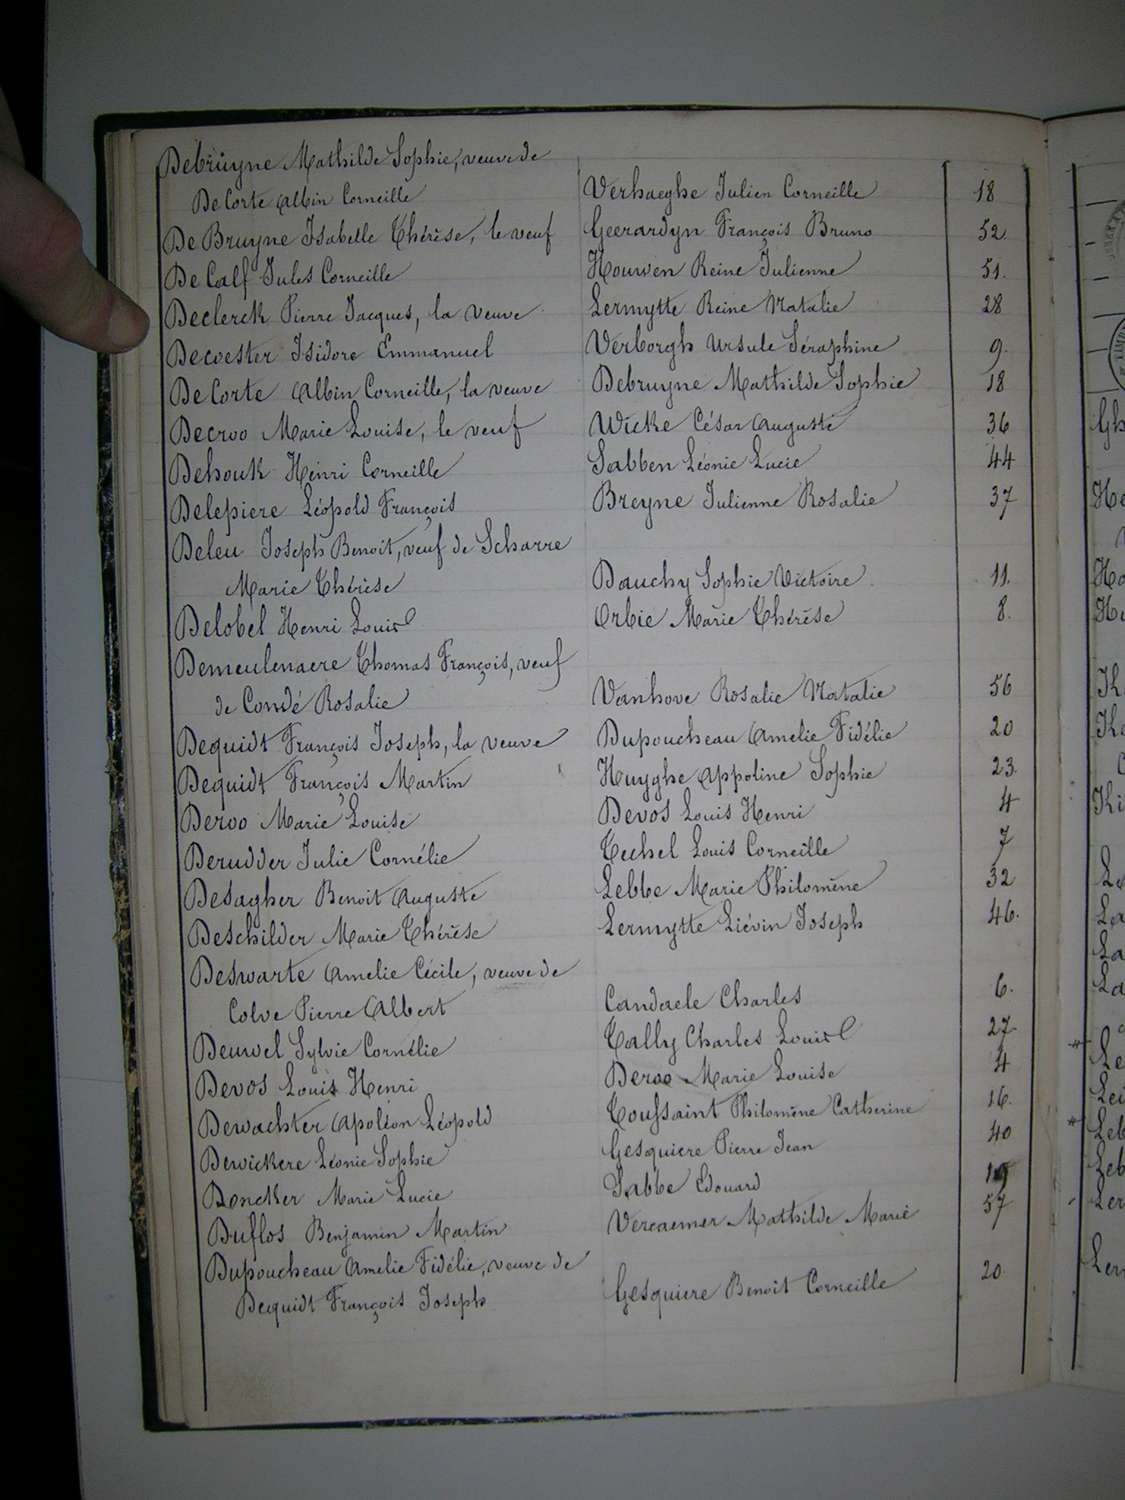 Debruyne Mathilde Sophie, veuve de
De Corte Albin Corneille Verhaeghe Julien Corneille 18
De Bruyne Isabelle Thérèse, le veuf Geerardyn François Bruno 52
De Calf Jules Corneille Houwen Reine Julienne 51.
Declerck Pierre Jacques, la veuve Lermytte Reine Natalie 28
Decoester Isidore Emmanuel Verborgh Ursule Séraphine 9.
De Corte Albin Corneille, la veuve Debruyne Mathilde Sophie 18
Decroo Marie Louise, le veuf Wicke César Auguste 36
Dehouk Henri Corneille Sabben Léonie Lucie 44
Delepiere Léopold François Breyne Julienne Rosalie 37
Deleu Joseph Benoit, veuf de Scharre
Marie Thérèse Dauchy Sophie Victoire 11.
Delobel Henri Louis Orbie Marie Thérèse 8.
Demeulenaere Thomas François, veuf
de Condé Rosalie Vanhove Rosalie Natalie 56
Dequidt François Joseph, la veuve Dupoucheau Amelie Fidélie 20
Dequidt François Martin Huyghe Appoline Sophie 23.
Deroo Marie Louise Devos Louis Henri 4
Derudder Julie Cornélie Techel Louis Corneille 7
Desagher Benoit Auguste Lebbe Marie Philomène 32
Deschilder Marie Thérèse Lermytte Liévin Joseph 46.
Deswarte Amelie Cécile, veuve de
Colve Pierre Albert Candaele Charles 6.
Deuwel Sylvie Cornélie Tally Charles Louis 27
Devos Louis Henri Deroo Marie Louise 4
Dewachter Apoléon Léopold Toussaint Philomène Catherine 16.
Dewickere Léonie Sophie Gesquiere Pierre Jean 40
Doncker Marie Lucie Sabbe Edouard
Duflos Benjamin Martin Vercaemer Mathilde Marie 57
Dupoucheau Amelie Fidélie, veuve de
Dequidt François Joseph Gesquiere Benoit Corneille 20